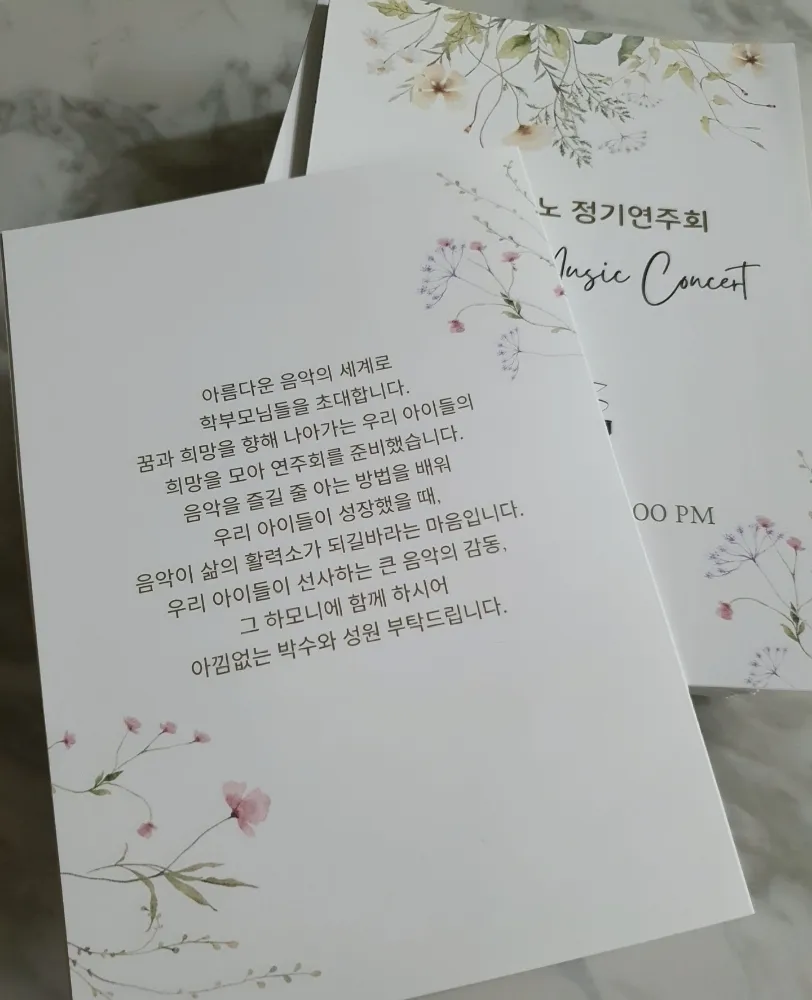 아름다운 음악의 세계로
학부모님들을 초대합니다.
꿈과 희망을 향해 나아가는 우리 아이들의
희망을 모아 연주회를 준비했습니다.
음악을 즐길 줄 아는 방법을 배워
우리 아이들이 성장했을 때,
음악이 삶의 활력소가 되길바라는 마음입니다.
우리 아이들이 선사하는 큰 음악의 감동,
그 하모니에 함께 하시어
아낌없는 박수와 성원 부탁드립니다.
노 정기연주회
Music Concert
00 PM